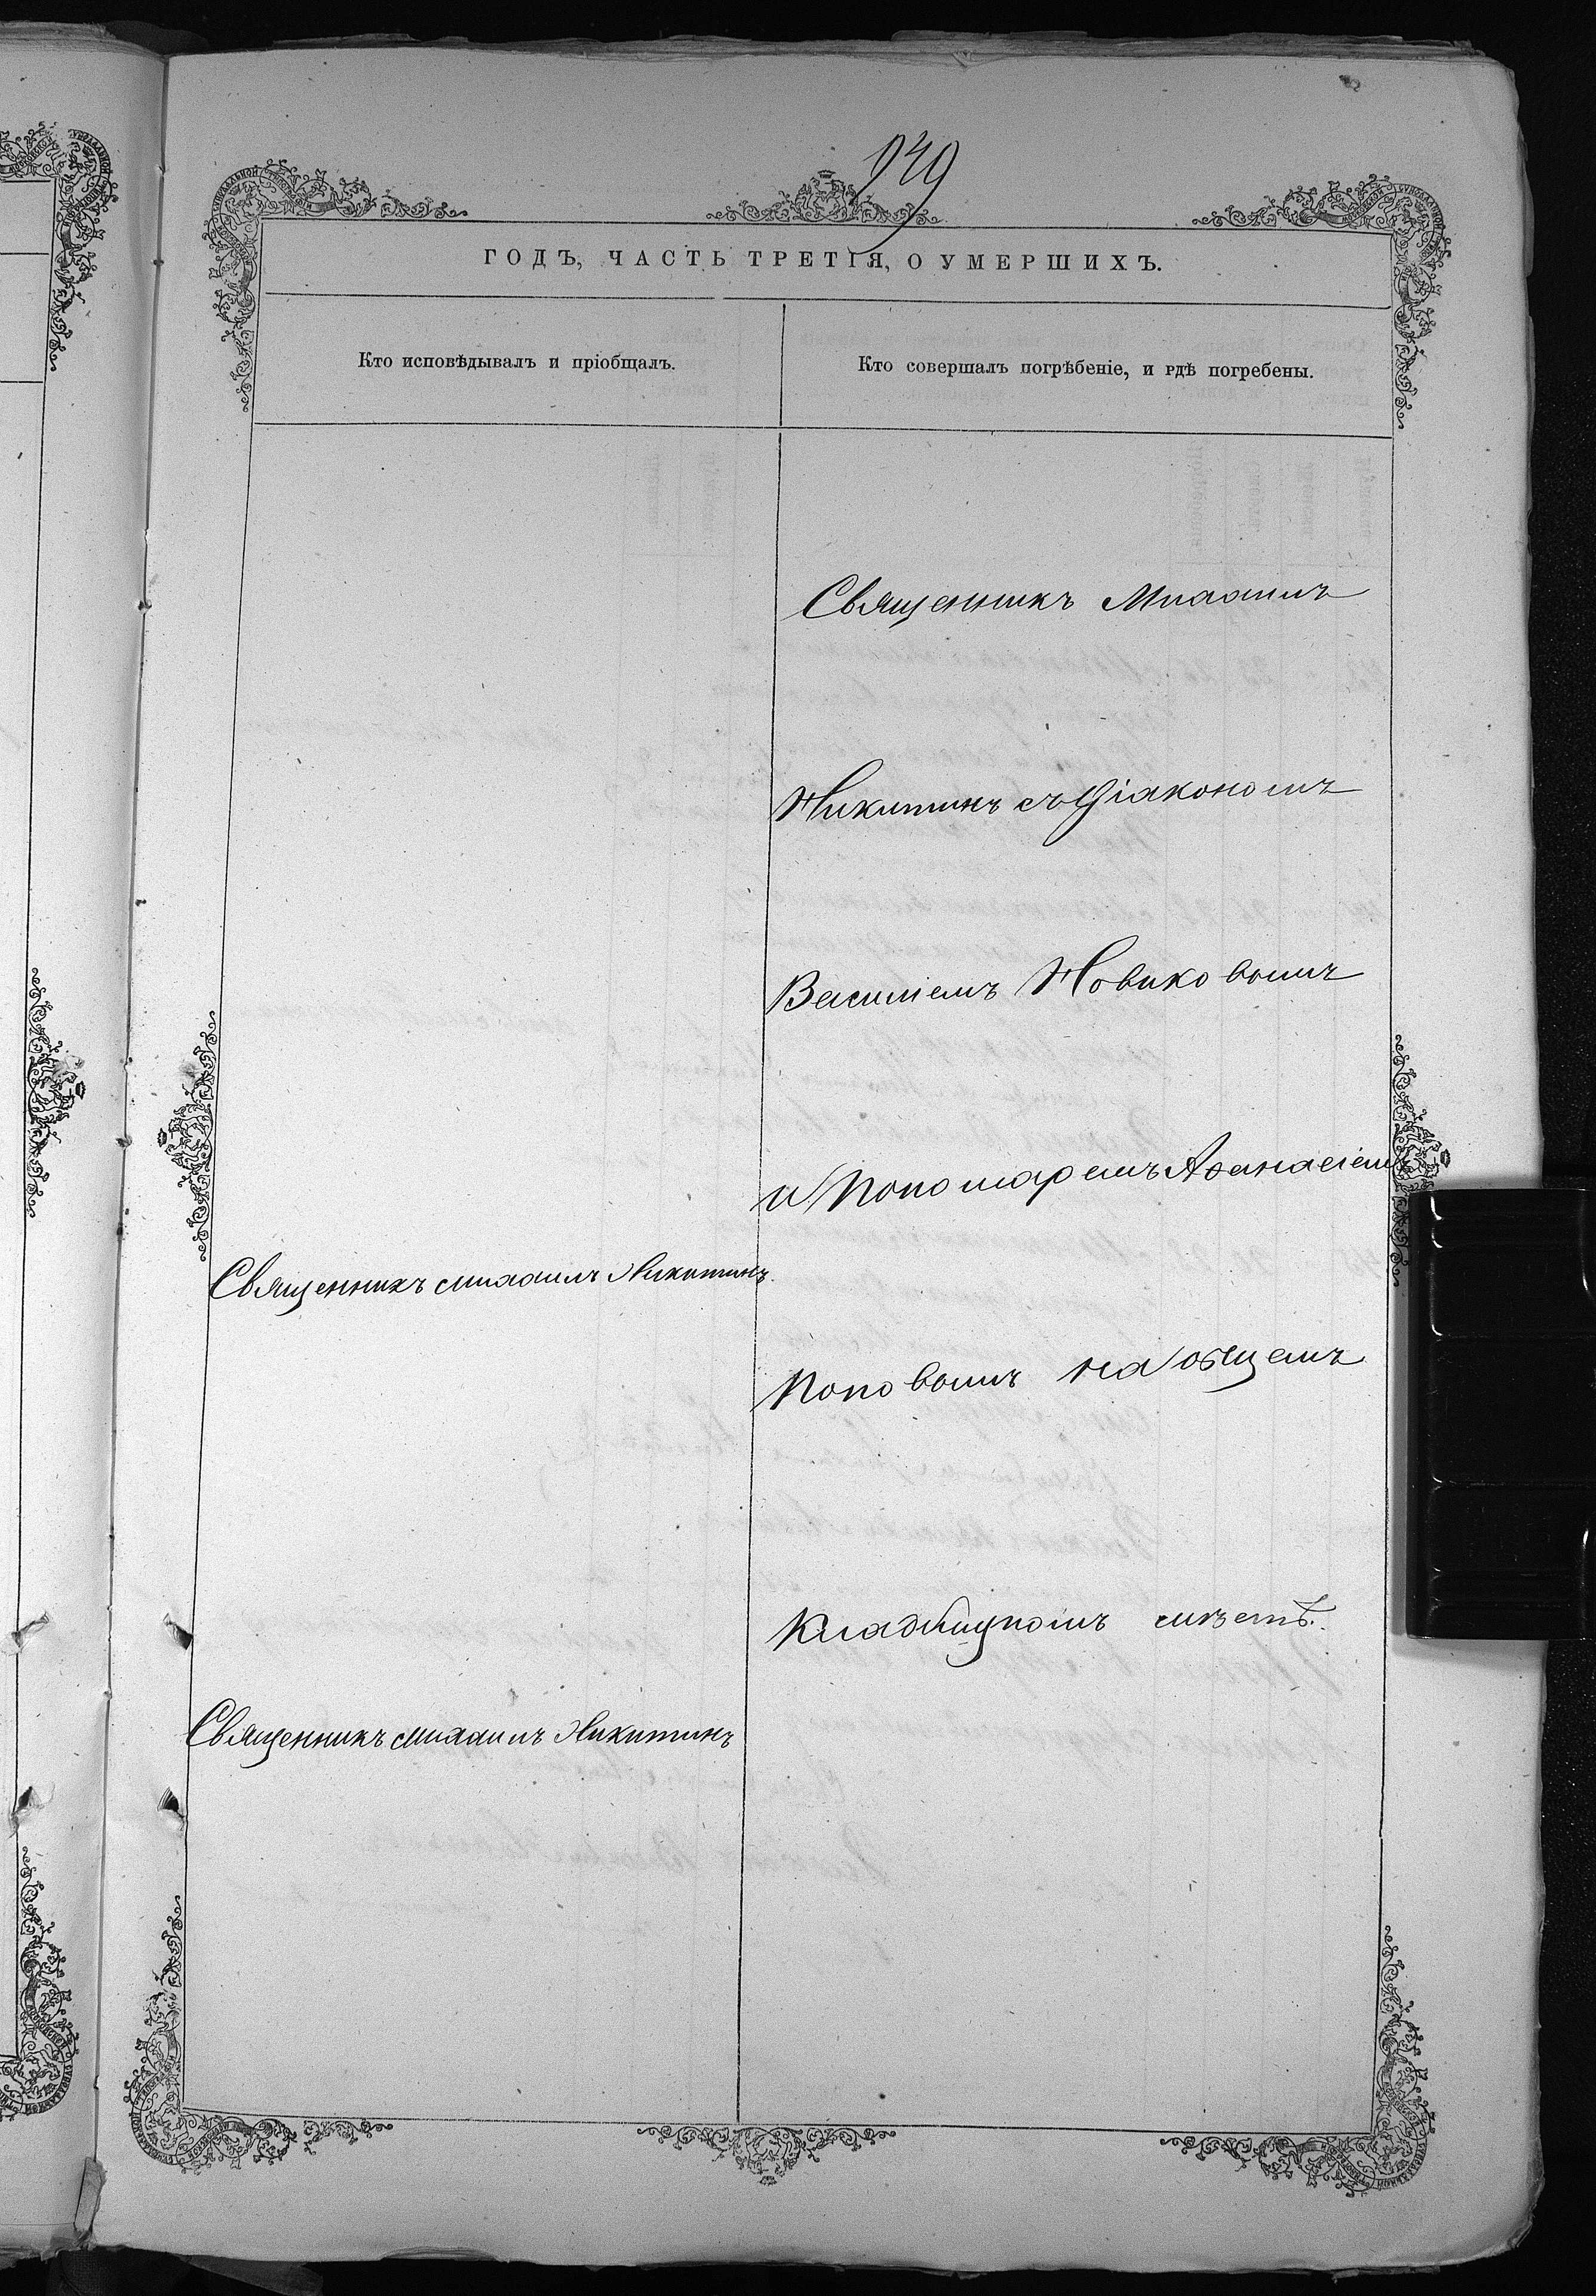 949
ГОДЪ, ЧАСТЬ ТРЕТІЯ, О УМЕРШИХЪ.
Кто исповѣдывалъ и пріобщалъ.
Кто совершалъ погрѣбеніе, и гдѣ погребены.
Священникъ Михаилъ
Никитинъ съ Діакономъ
Василіемъ Новиковымъ
и Пономаремъ Аѳанасіемъ
Священникъ Михаилъ Никитинъ
Поповымъ на общемъ
Кладбищномъ мѣстѣ.
Священникъ Михаилъ Никитинъ